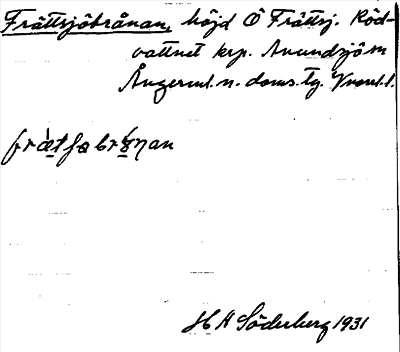 Frättsjöbrånan, höjd Ö Frättsj. Röd-
vattnet krp. Anundsjö sn
Ångerml. n. doms. tg. Vnorrl. l.
frætʃəbrånan
H A Söderberg 1931